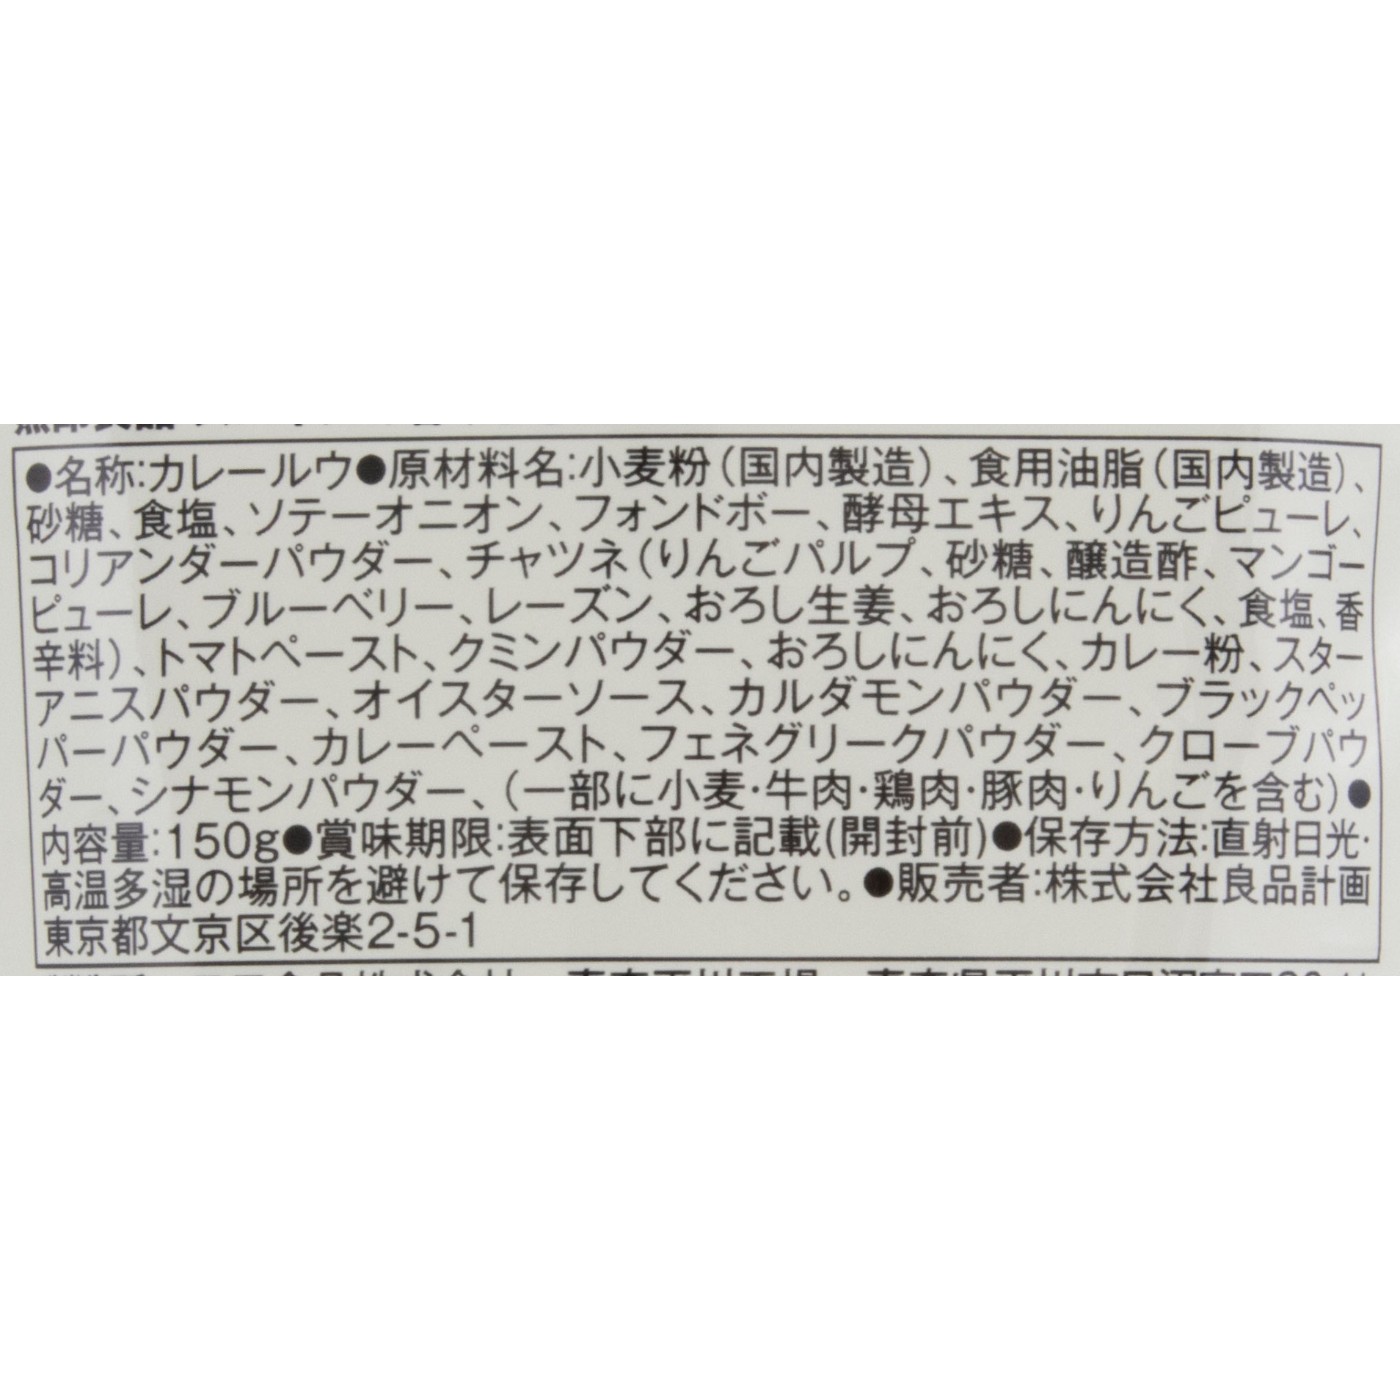 ●名称:カレールウ●原材料名:小麦粉(国内製造)、食用油脂(国内製造)、
砂糖、食塩、ソテーオニオン、フォンドボー、酵母エキス、りんごピューレ、
コリアンダーパウダー、チャツネ(りんごパルプ、砂糖、醸造酢、マンゴー
ピューレ、ブルーベリー、レーズン、おろし生姜、おろしにんにく、食塩、香
辛料)、トマトペースト、クミンパウダー、おろしにんにく、カレー粉、スター
アニスパウダー、オイスターソース、カルダモンパウダー、ブラックペッ
パーパウダー、カレーペースト、フェネグリークパウダー、クローブパウ
ダー、シナモンパウダー、(一部に小麦・牛肉・鶏肉・豚肉・りんごを含む)●
内容量:150g●賞味期限:表面下部に記載(開封前)●保存方法:直射日光・
高温多湿の場所を避けて保存してください。●販売者:株式会社良品計画
東京都文京区後楽2-5-1